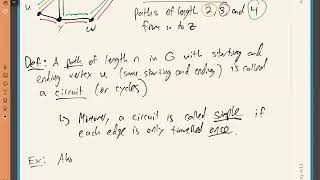 paths of length 2, 3 and 4
from u to z
u
y
w
Def: A path of length n in G with starting and
ending vertex u (same starting and ending) is called
a circuit (or cycles)
↳ Moreover, a circuit is called simple if
each edge is only travelled once.
Ex: Abo